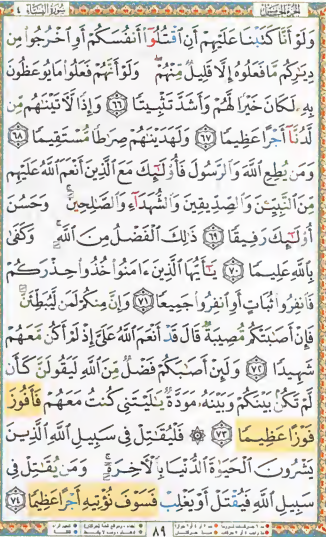 سُورَةُ النِّسَاءِ ٤
وَلَوْ أَنَّا كَتَبْنَا عَلَيْهِمْ أَنِ اقْتُلُوا أَنفُسَكُمْ أَوِ اخْرُجُوا مِن
دِيَارِكُم مَّا فَعَلُوهُ إِلَّا قَلِيلٌ مِّنْهُمْ ۖ وَلَوْ أَنَّهُمْ فَعَلُوا مَا يُوعَظُونَ
بِهِ لَكَانَ خَيْرًا لَّهُمْ وَأَشَدَّ تَثْبِيتًا ٦٦ وَإِذًا لَّآتَيْنَاهُم مِّن
لَّدُنَّا أَجْرًا عَظِيمًا ٦٧ وَلَهَدَيْنَاهُمْ صِرَاطًا مُّسْتَقِيمًا ٦٨
وَمَن يُطِعِ اللَّهَ وَالرَّسُولَ فَأُولَٰئِكَ مَعَ الَّذِينَ أَنْعَمَ اللَّهُ عَلَيْهِم
مِّنَ النَّبِيِّينَ وَالصِّدِّيقِينَ وَالشُّهَدَاءِ وَالصَّالِحِينَ ۚ وَحَسُنَ
أُولَٰئِكَ رَفِيقًا ٦٩ ذَٰلِكَ الْفَضْلُ مِنَ اللَّهِ ۚ وَكَفَىٰ
بِاللَّهِ عَلِيمًا ٧٠ يَا أَيُّهَا الَّذِينَ آمَنُوا خُذُوا حِذْرَكُمْ
فَانفِرُوا ثُبَاتٍ أَوِ انفِرُوا جَمِيعًا ٧١ وَإِنَّ مِنكُمْ لَمَن لَّيُبَطِّئَنَّ
فَإِنْ أَصَابَتْكُم مُّصِيبَةٌ قَالَ قَدْ أَنْعَمَ اللَّهُ عَلَيَّ إِذْ لَمْ أَكُن مَّعَهُمْ
شَهِيدًا ٧٢ وَلَئِنْ أَصَابَكُمْ فَضْلٌ مِّنَ اللَّهِ لَيَقُولَنَّ كَأَن
لَّمْ تَكُن بَيْنَكُمْ وَبَيْنَهُ مَوَدَّةٌ يَا لَيْتَنِي كُنتُ مَعَهُمْ فَأَفُوزَ
فَوْزًا عَظِيمًا ٧٣ ۞ فَلْيُقَاتِلْ فِي سَبِيلِ اللَّهِ الَّذِينَ
يَشْرُونَ الْحَيَاةَ الدُّنْيَا بِالْآخِرَةِ ۚ وَمَن يُقَاتِلْ فِي
سَبِيلِ اللَّهِ فَيُقْتَلْ أَوْ يَغْلِبْ فَسَوْفَ نُؤْتِيهِ أَجْرًا عَظِيمًا ٧٤
٨٩